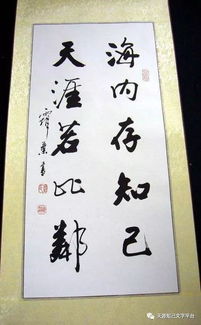 海内存知己
天涯若比邻
霍业书
天源知己文字平台